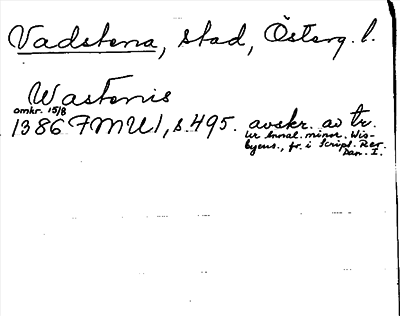 Vadstena, stad, Österg. l.
Wastenis
omkr. 15/8
1386 FMU 1, s. 495. avskr. av tr.
ur Annal. minor. Wis-
byens., tr. i Script. Rer.
Dan. I.